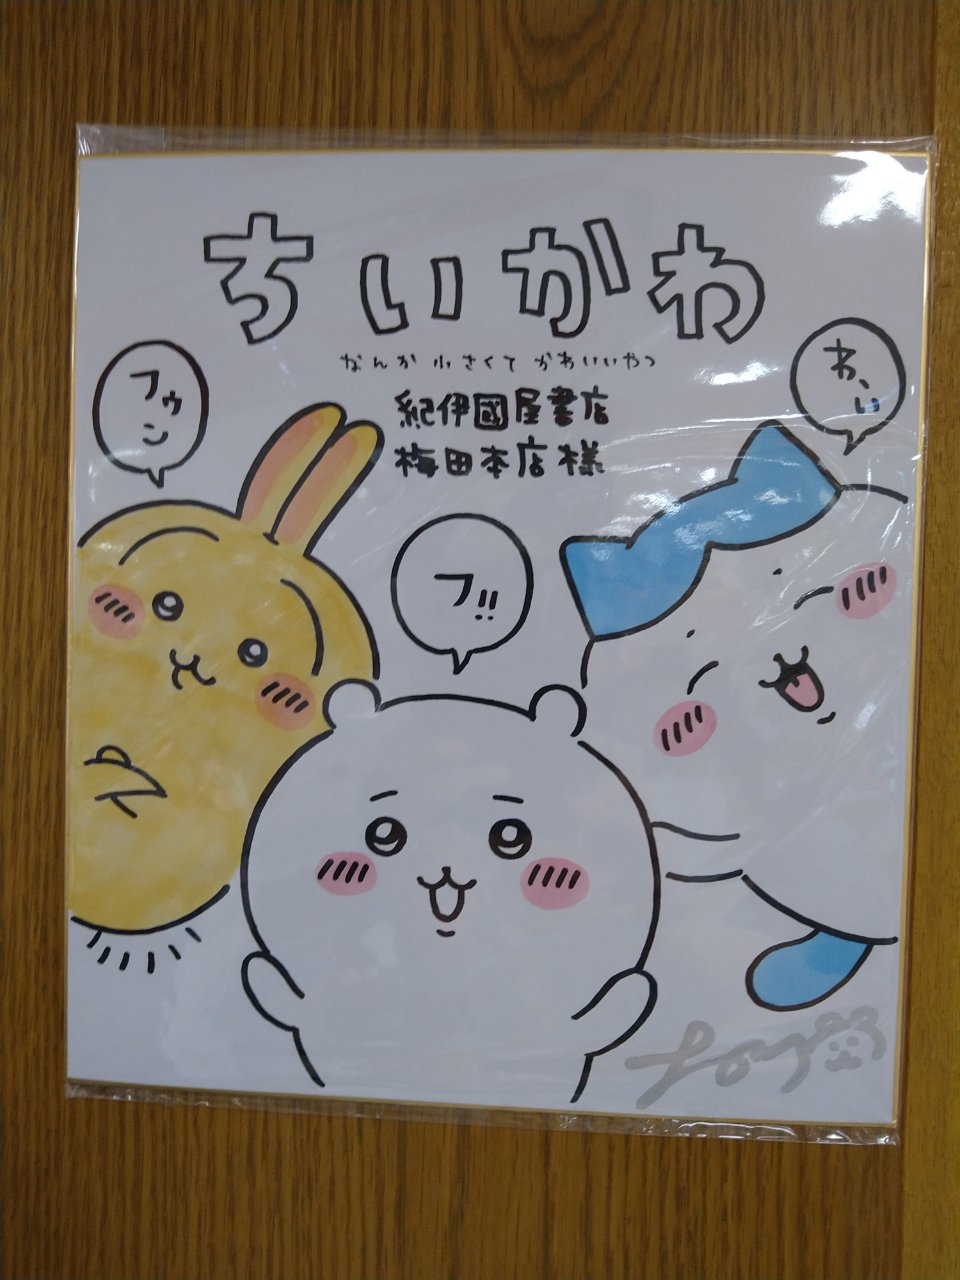 ちいかわ
なんか小さくてかわいいやつ
紀伊國屋書店
梅田本店様
フゥン
わ、い
フ!!